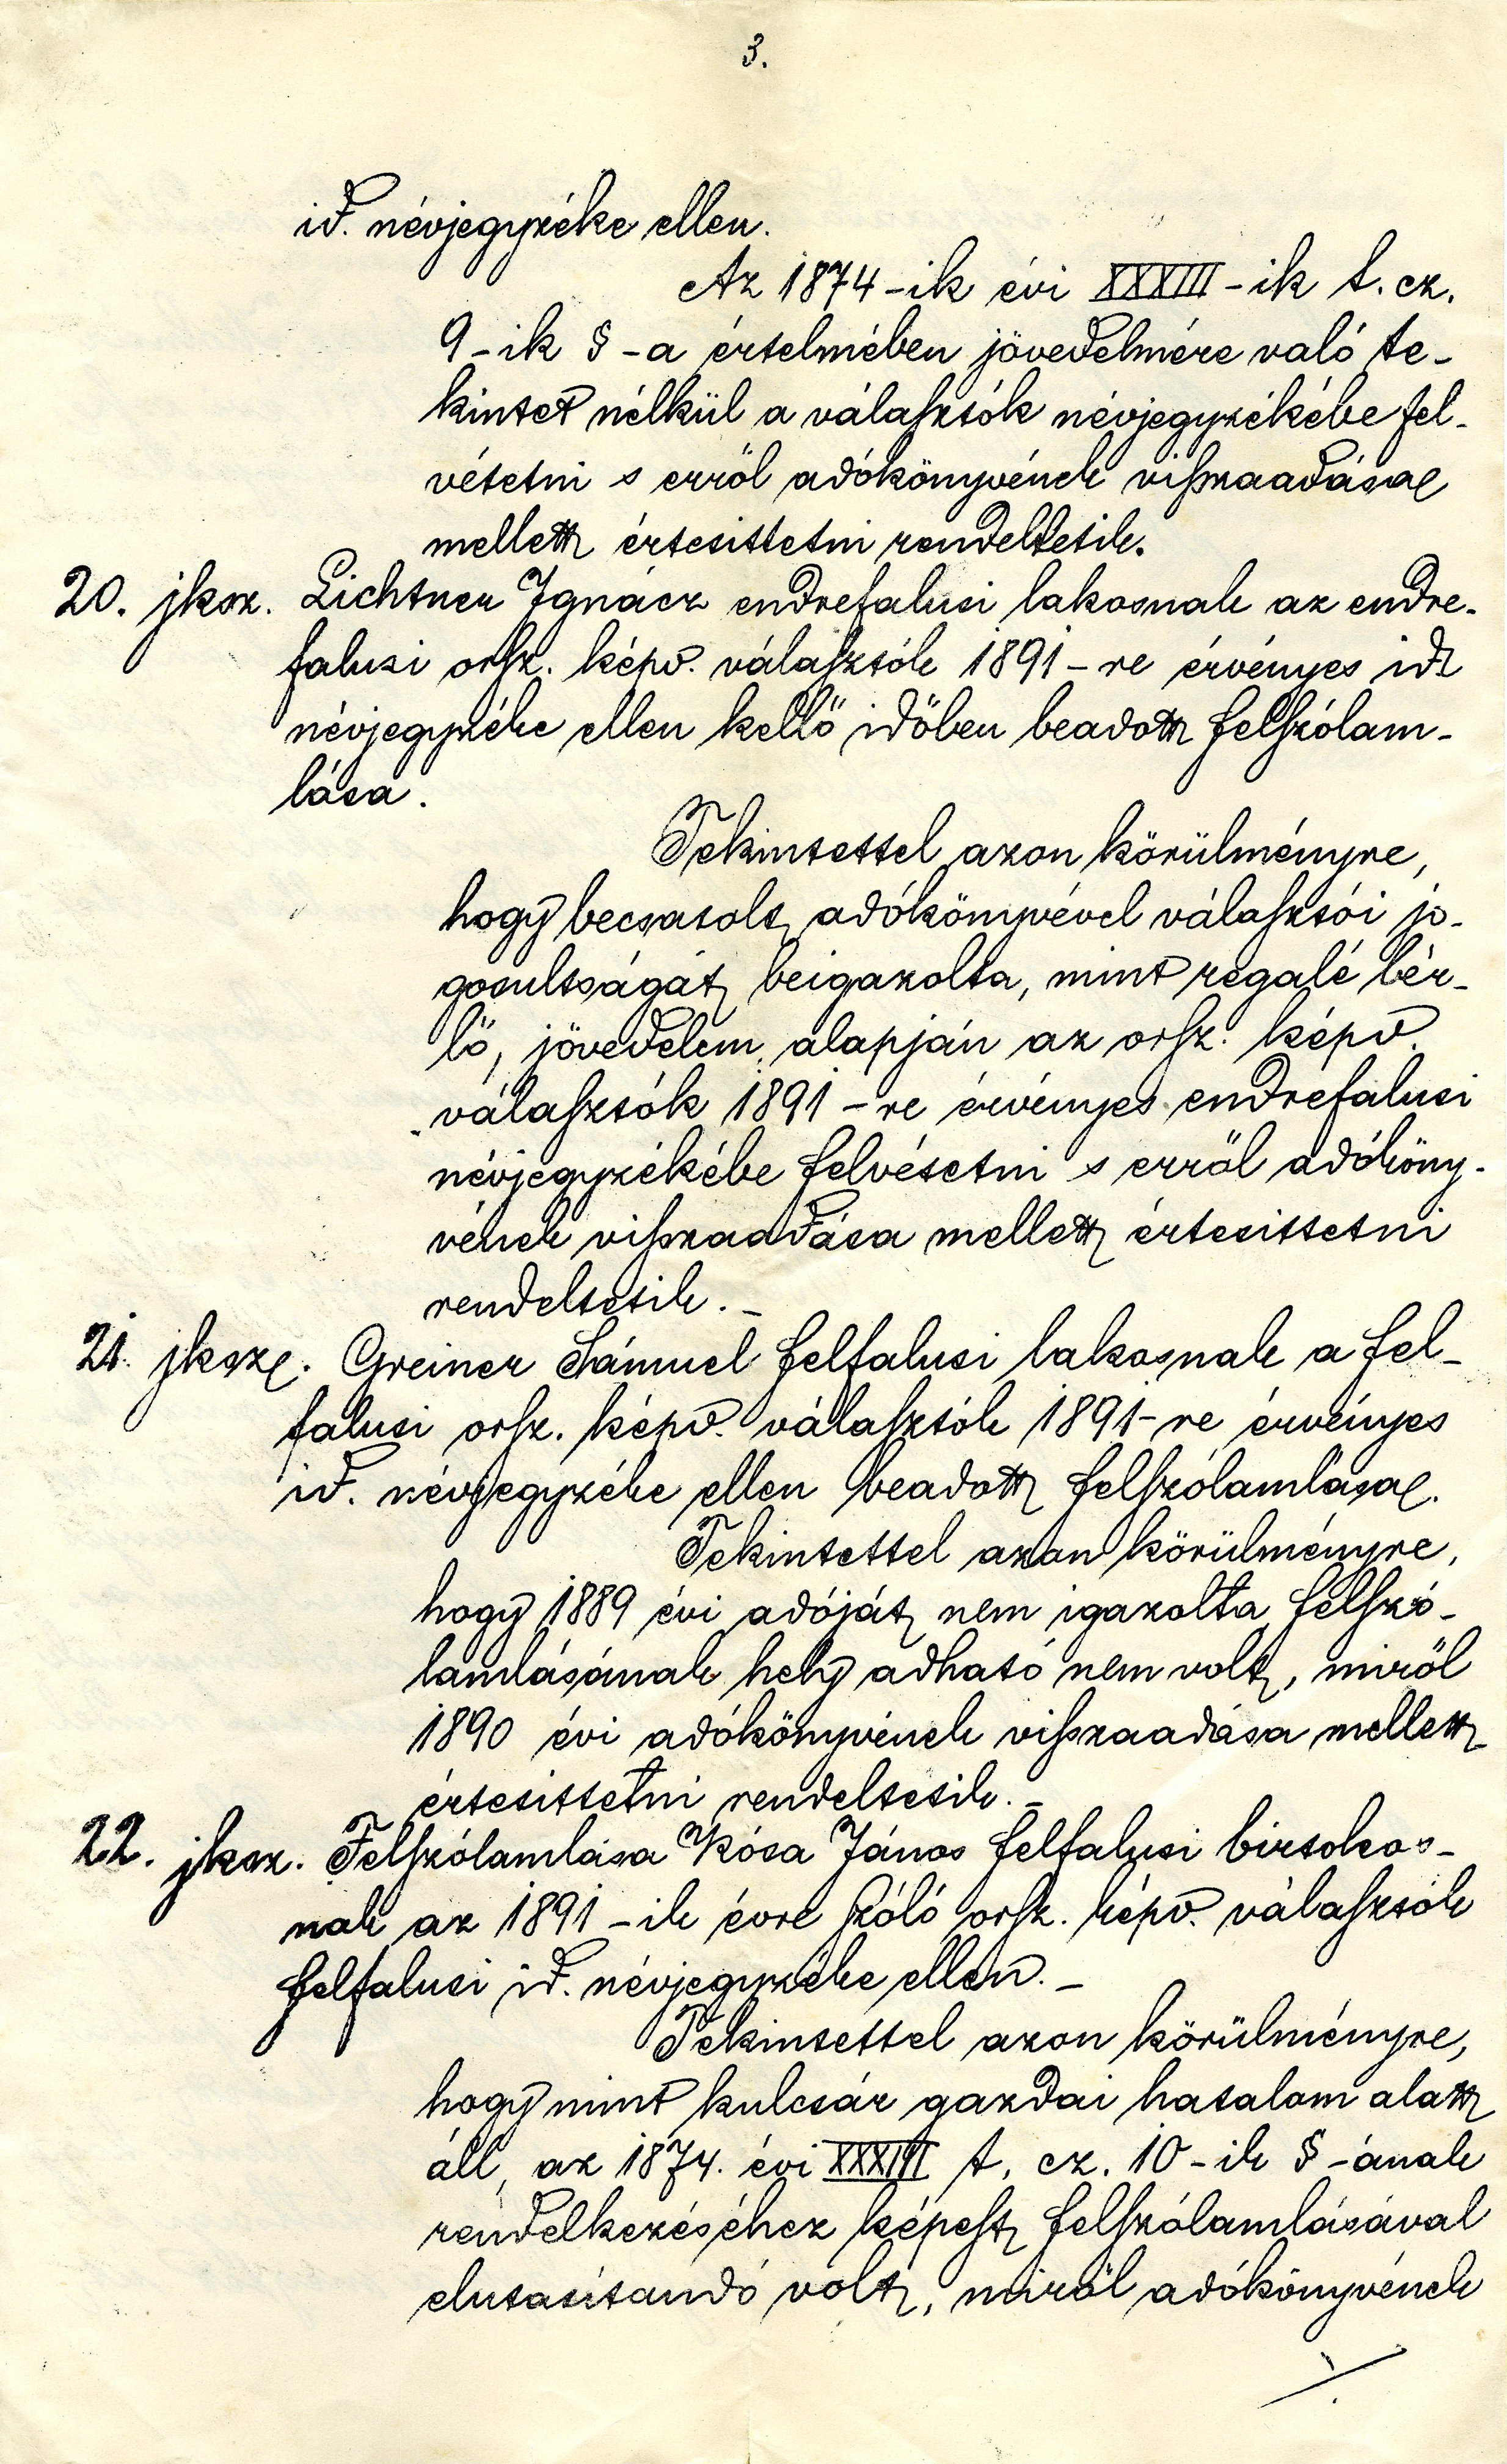 3.
id. névjegyzéke ellen.
Az 1874-ik évi XXXIII-ik t. cz.
9-ik §-a értelmében jövedelmére való te-
kintet nélkül a választók névjegyzékébe fel-
vétetni s erről adókönyvének visszaadása
mellett értesittetni rendeltetik.
20. jksz. Lichtner Ignácz endrefalusi lakosnak az endre-
falusi orsz. képv. választók 1891-re érvényes id.
névjegyzéke ellen kellő időben beadott felszólam-
lása.
Tekintettel azon körülményre,
hogy becsatolt adókönyvével választói jo-
gosultságát beigazolta, mint regalé bér-
lő, jövedelem alapján az orsz. képv.
választók 1891-re érvényes endrefalusi
névjegyzékébe felvétetni s erről adóköny-
vének visszaadása mellett értesittetni
rendeltetik.-
21. jksz. Greiner Sámuel felfalusi lakosnak a fel-
falusi orsz. képv. választók 1891-re érvényes
id. névjegyzéke ellen beadott felszólamlása.
Tekintettel azon körülményre,
hogy 1889 évi adóját nem igazolta felszó-
lamlásának hely adható nem volt, miről
1890 évi adókönyvének visszaadása mellett
értesittetni rendeltetik.-
22. jksz. Felszólamlása Kósa János felfalusi birtokos-
nak az 1891-ik évre szóló orsz. képv. választók
felfalusi id. névjegyzéke ellen.-
Tekintettel azon körülményre,
hogy mint kulcsár gazdai hatalom alatt
áll, az 1874. évi XXXIII t. cz. 10-ik §-ának
rendelkezéséhez képest felszólamlásával
elutasítandó volt, miről adókönyvének
./.